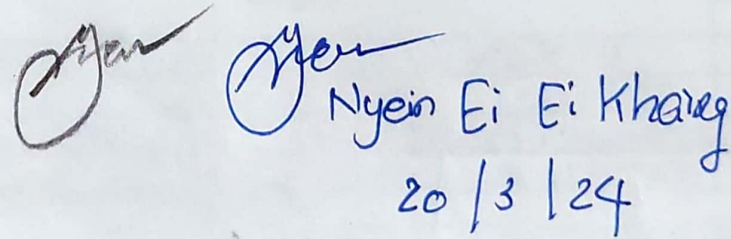 Nyein Ei Ei Khaing
20/3/24